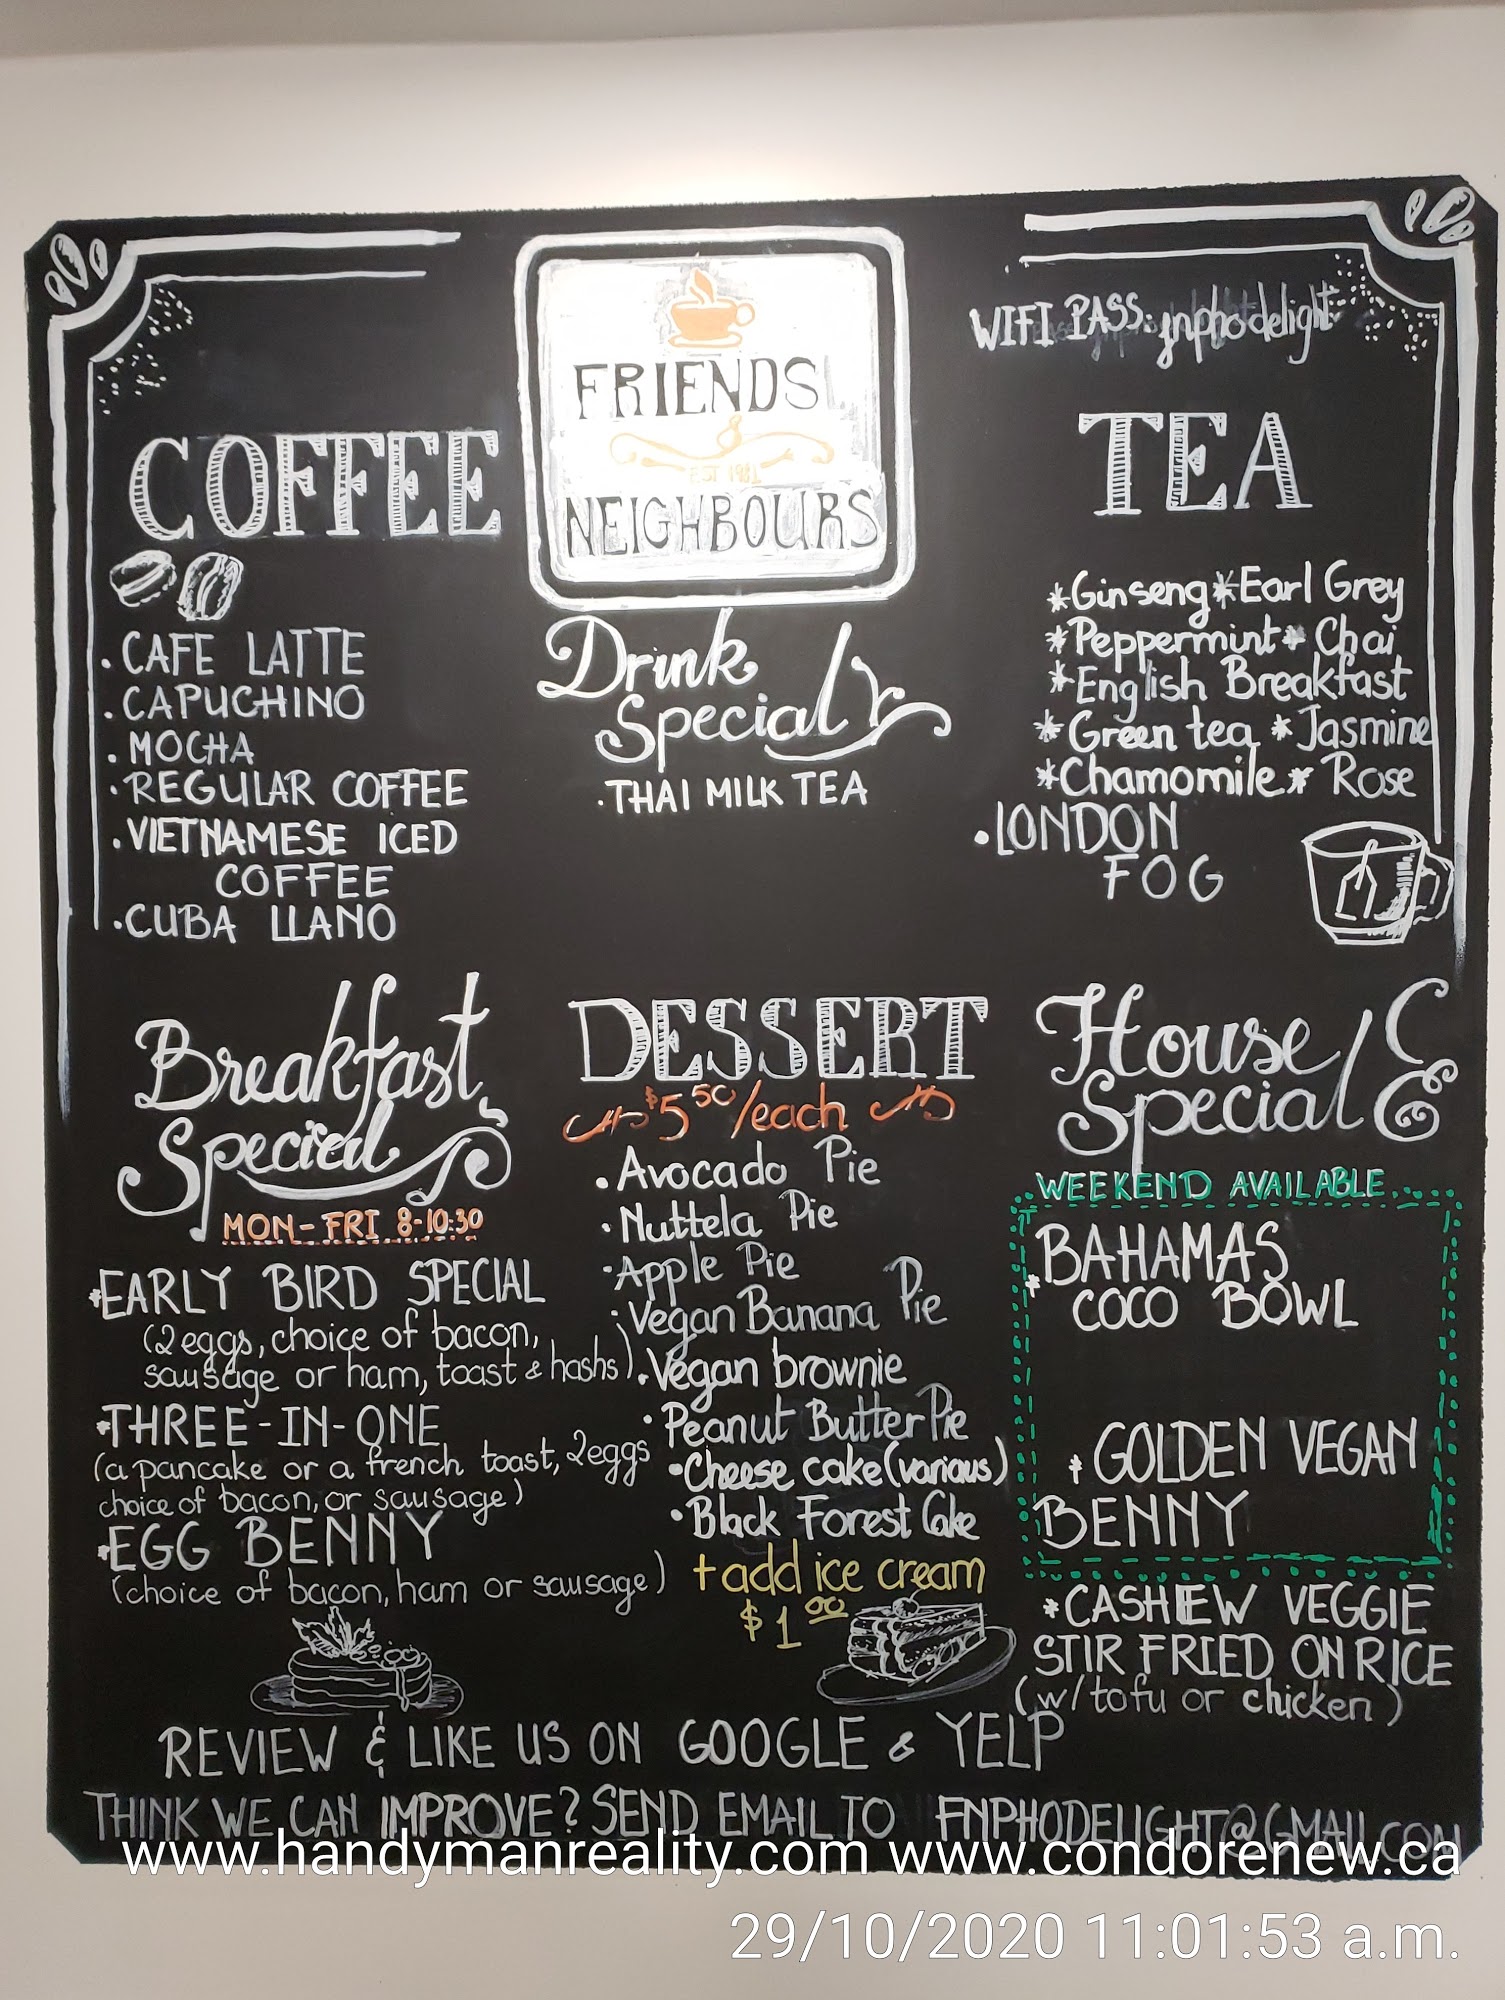 FRIENDS
&
EST 1981
NEIGHBOURS
WIFI PASS: fnphodelight
COFFEE
. CAFE LATTE
. CAPUCHINO
. MOCHA
. REGULAR COFFEE
. VIETNAMESE ICED
COFFEE
. CUBA LLANO
Drink
Special
. THAI MILK TEA
TEA
*Ginseng *Earl Grey
*Peppermint * Chai
*English Breakfast
*Green tea *Jasmine
*Chamomile * Rose
. LONDON
FOG
Breakfast
Special
MON-FRI 8-10:30
*EARLY BIRD SPECIAL
(2eggs, choice of bacon,
sausage or ham, toast & hashs)
*THREE-IN-ONE
(a pancake or a french toast, 2eggs
choice of bacon, or sausage)
*EGG BENNY
(choice of bacon, ham or sausage)
DESSERT
$5.50/each
. Avocado Pie
. Nuttela Pie
. Apple Pie
. Vegan Banana Pie
. Vegan brownie
. Peanut Butter Pie
. Cheese cake (various)
. Black Forest Cake
+ add ice cream
$1.00
House
Special
WEEKEND AVAILABLE
* BAHAMAS
COCO BOWL
* GOLDEN VEGAN
BENNY
*CASHEW VEGGIE
STIR FRIED ON RICE
(w/tofu or chicken)
REVIEW & LIKE US ON GOOGLE & YELP
THINK WE CAN IMPROVE? SEND EMAIL TO FNPHODELIGHT@GMAIL.COM
www.handymanreality.com www.condorenew.ca
29/10/2020 11:01:53 a.m.